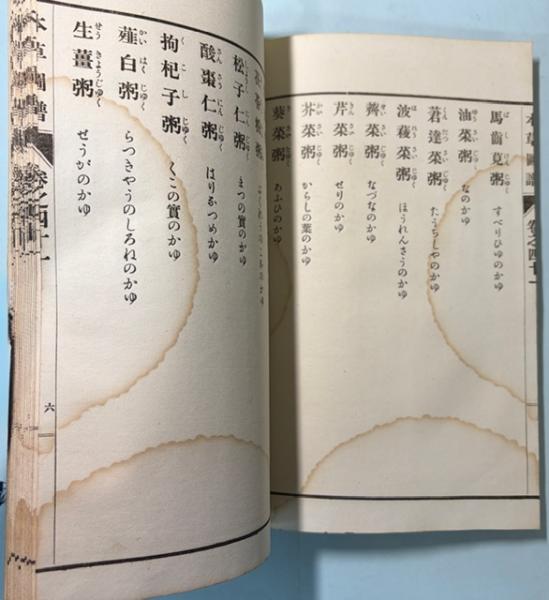 本草圖譜 卷之四十一
馬齒莧粥 すべりひゆのかゆ
油菜粥 なのかゆ
莙薘菜粥 たうぢしやのかゆ
波薐菜粥 ほうれんさうのかゆ
薺菜粥 なづなのかゆ
芹菜粥 せりのかゆ
芥菜粥 からしの葉のかゆ
葵菜粥 あふひのかゆ
松子仁粥 まつの實のかゆ
酸棗仁粥 はりなつめのかゆ
拘杞子粥 くこの實のかゆ
薤白粥 らつきやうのしろねのかゆ
生薑粥 せうがのかゆ
本草圖譜 卷之四十一
六